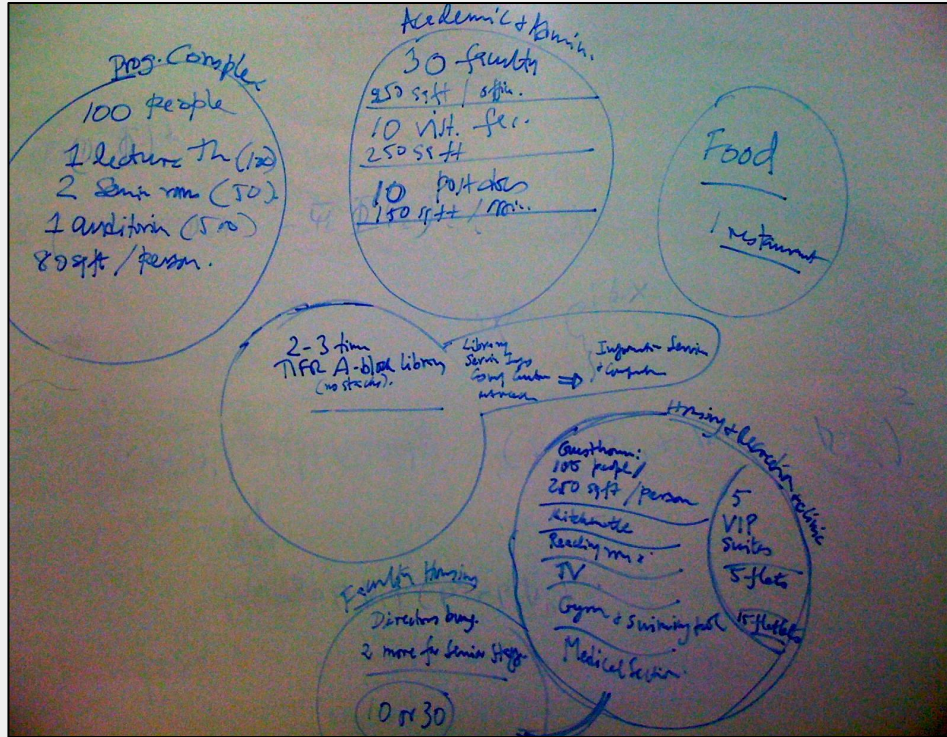 Prog. Complex
100 people
1 lecture Th (100)
2 Semin rooms (50)
1 auditorium (500)
80 sqft / person.
Academic & Admin.
30 faculty
250 sqft / offic.
10 Visit. fac.
250 sqft
10 postdocs
150 sqft / offic.
Food
1 restaurant
2-3 times
TIFR A-block Library
(no stacks).
Library
⇒
Information Service
& Computer
Housing & Recreation & clinic
Guesthouse:
100 people/
250 sqft / person
Kitchenette
Reading room &
TV
Gym & Swimming pool
Medical Section.
5
VIP
Suites
5 flats
15 flatlets
Faculty Housing
Directors bung.
2 more for Senior
10 or 30